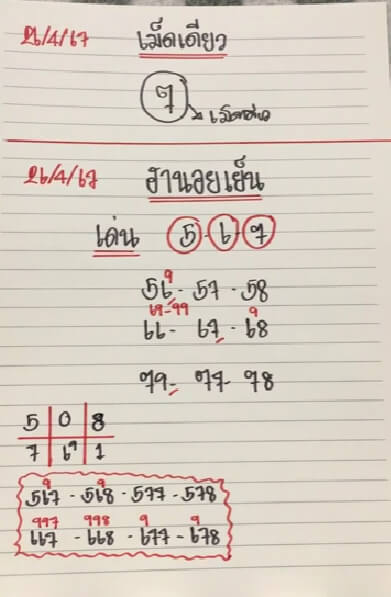 26/4/67 เม็ดเดียว
7
26/4/67 ฮานอยเย็น
เด่น 5-6-7
9
56 - 57 - 58
69-99 9
66 - 67 - 68
79 - 77 - 78
5 0 8
7 6 1
9 9
567 - 568 - 577 - 578
997 998 9 9
667 - 668 - 677 - 678